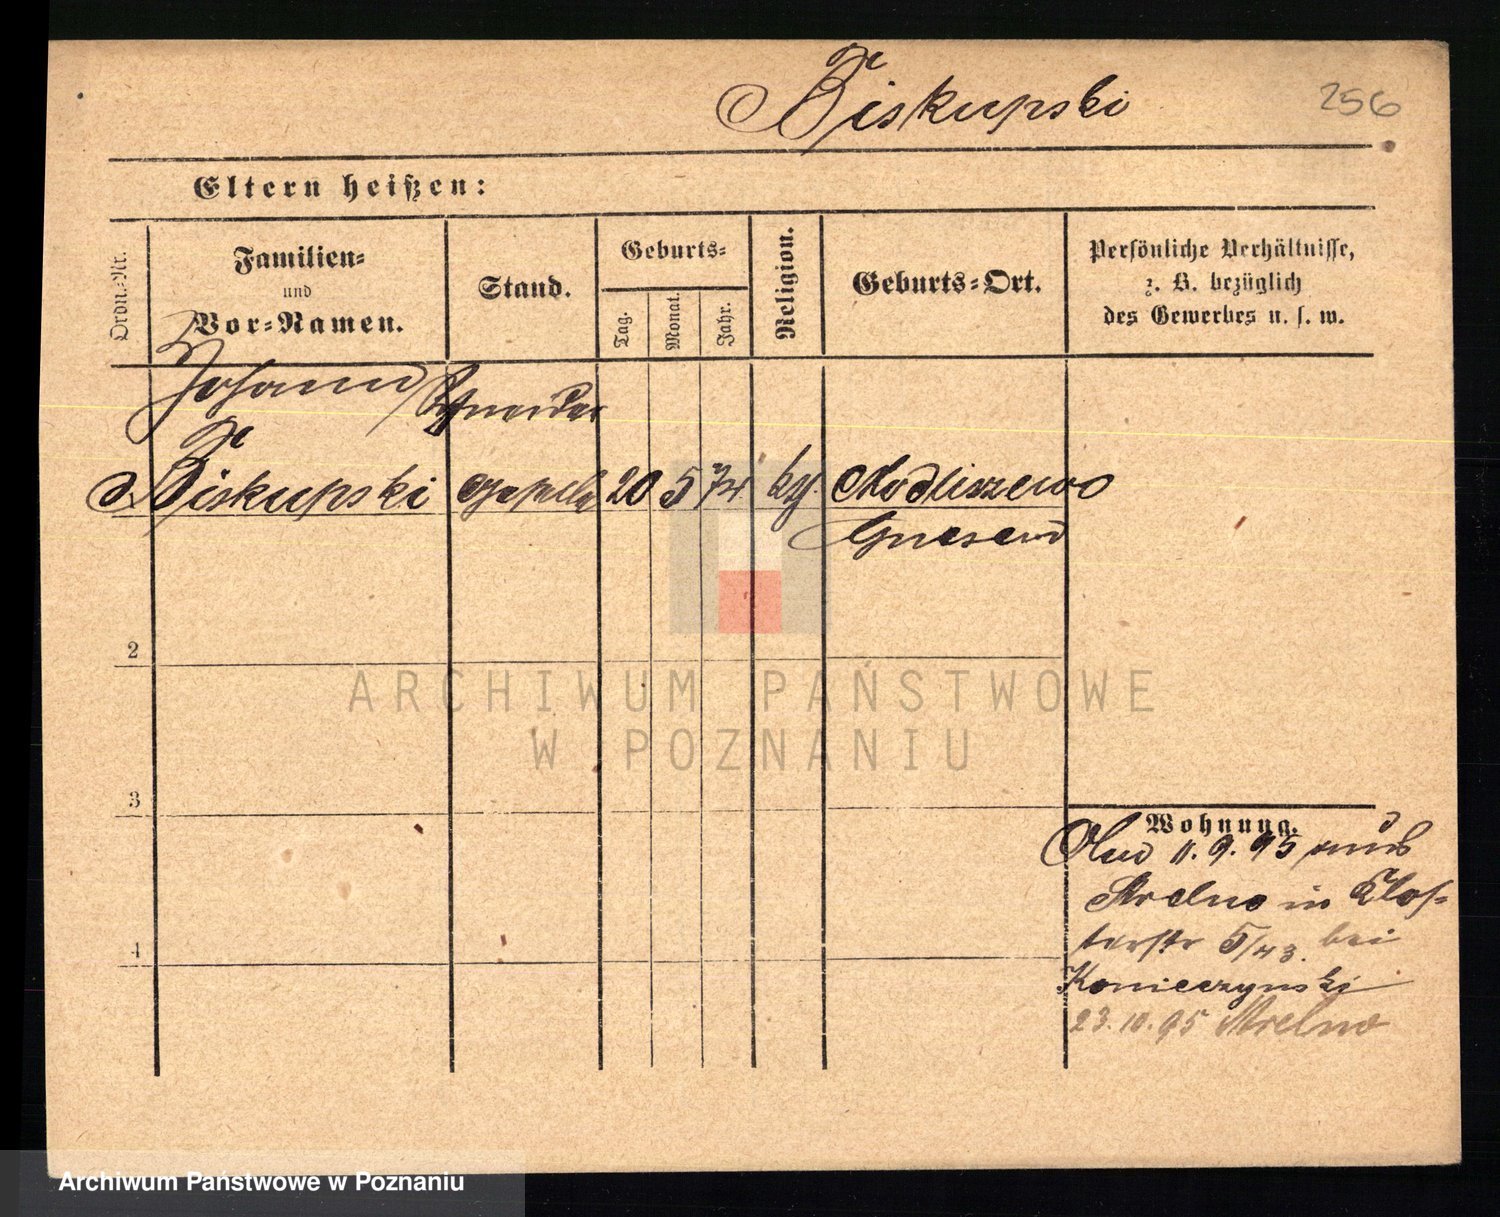 Biskupski
256
Eltern heißen:
Ordn.-Nr.
Familien-
und
Vor-Namen.
Stand.
Geburts-
Tag.
Monat.
Jahr.
Religion.
Geburts-Ort.
Persönliche Verhältnisse,
z. B. bezüglich
des Gewerbes u. s. w.
Johann Schneider
Biskupski 20 5 74 Modliszewo
Gnesen
2
3
4
Wohnung.
11. 9. 95 aus
Strelno in Klos-
terstr 5/43. bei
Konieczynski
23. 10. 95 Strelno
ARCHIWUM PAŃSTWOWE
W POZNANIU
Archiwum Państwowe w Poznaniu